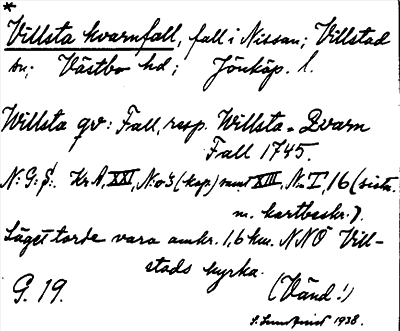 *
Villsta kvarnfall, fall i Nissan; Villstad
sn; Västbo hd; Jönköp. l.
Willsta qv: Fall, resp. Willsta-Qvarn
Fall 1745.
N:G:S:. Kr A, XXI, N:o 3 (kop.) samt XIII, N:o I, 16 (sistn.
m. kartbeskr.).
Läget torde vara omkr. 1,6 km. NNÖ Vill-
stads kyrka.
G. 19. (Vänd!)
1938.